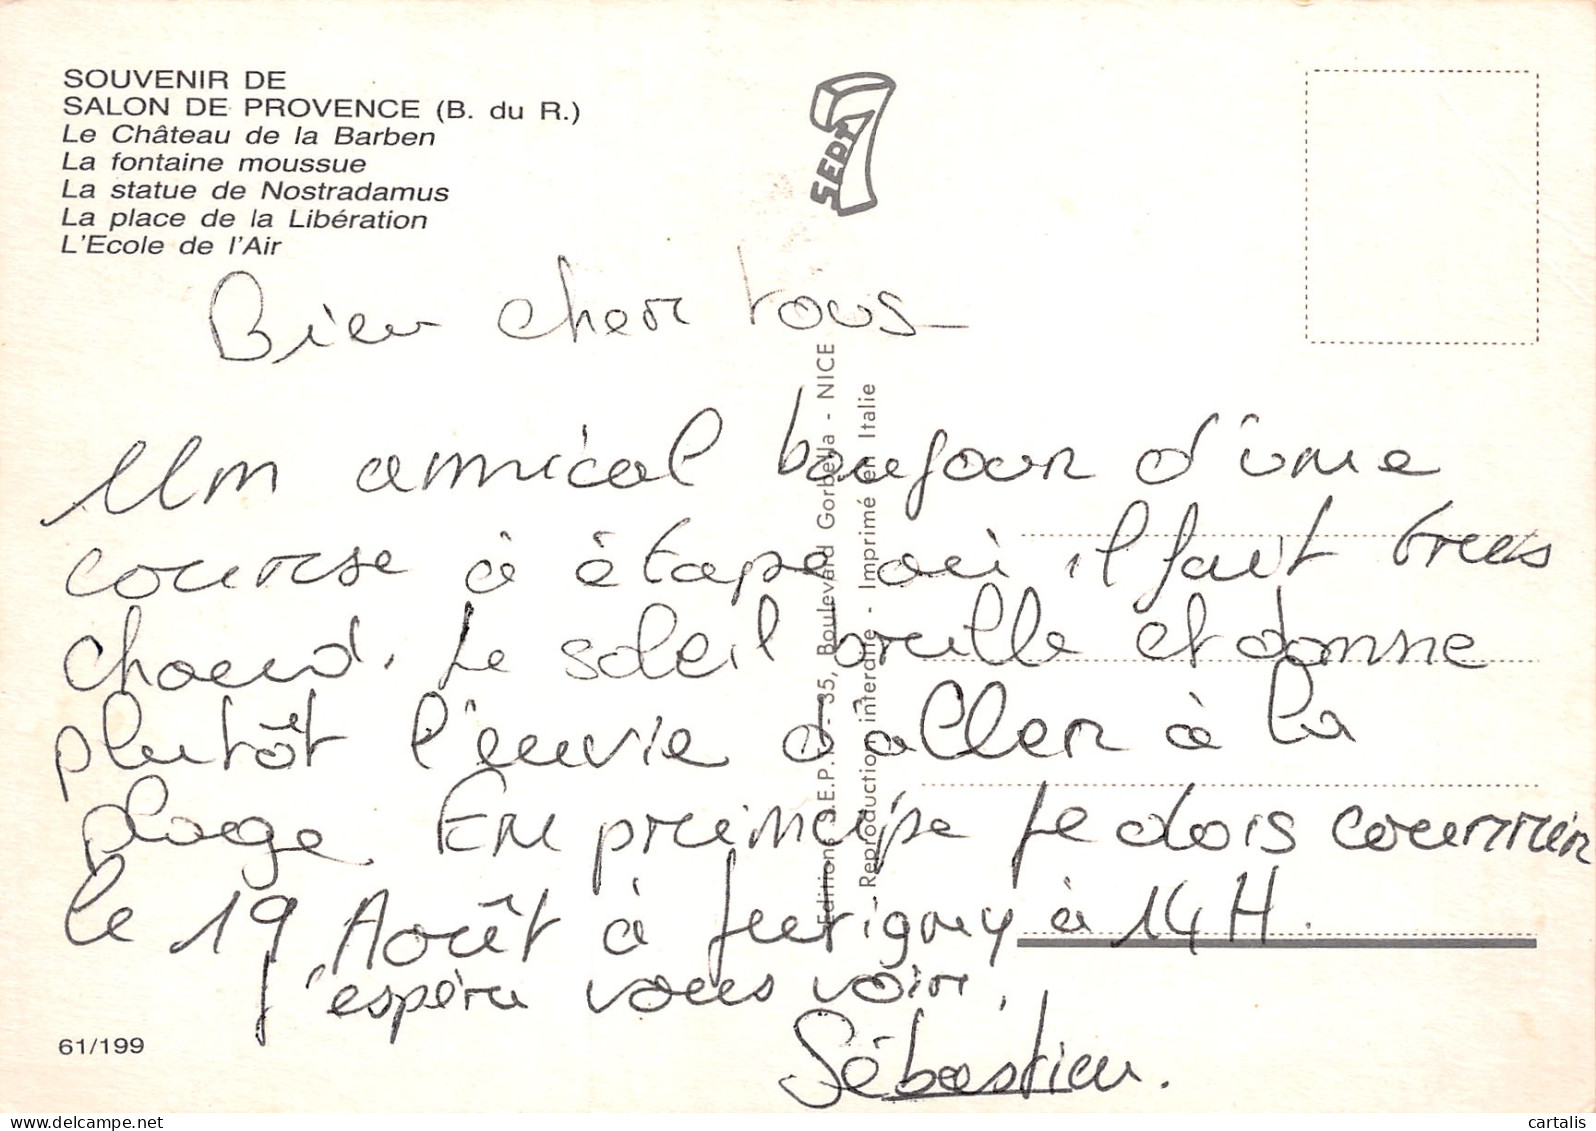 SOUVENIR DE
SALON DE PROVENCE (B. du R.)
Le Château de la Barben
La fontaine moussue
La statue de Nostradamus
La place de la Libération
L'Ecole de l'Air
7
SEPT
Bien cher tous
Un amical bonjour d'une
course à étape où il fait très
chaud. Le soleil brille et donne
plutôt l'envie d'aller à la
plage. En principe je dois courrir
le 19 Août à Juvigny à 14H.
J'espère vous voir.
Sébastien.
Editions S.E.P.T. - 35, Boulevard Gorbella - NICE
Reproduction interdite - Imprimé en Italie
61/199
cartalis